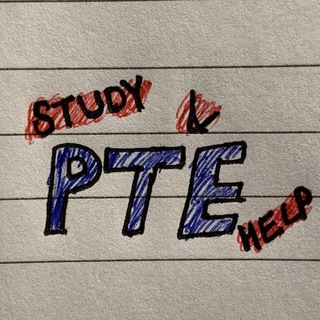 STUDY &
PTE
HELP